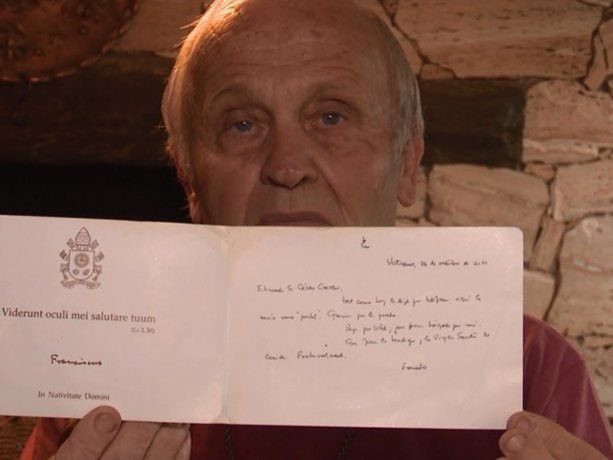 Viderunt oculi mei salutare tuum
(Lc 2, 30)
Franciscus
In Nativitate Domini
Vaticano, de octubre de
Sr. César
tal como hoy le dije por teléfono, aquí le
envío una "postal". Gracias por la
Rezo por Usted, por favor hágalo por mí.
Que Jesús lo bendiga y la Virgen Santa lo
cuide. Fraternalmente,
Francisco